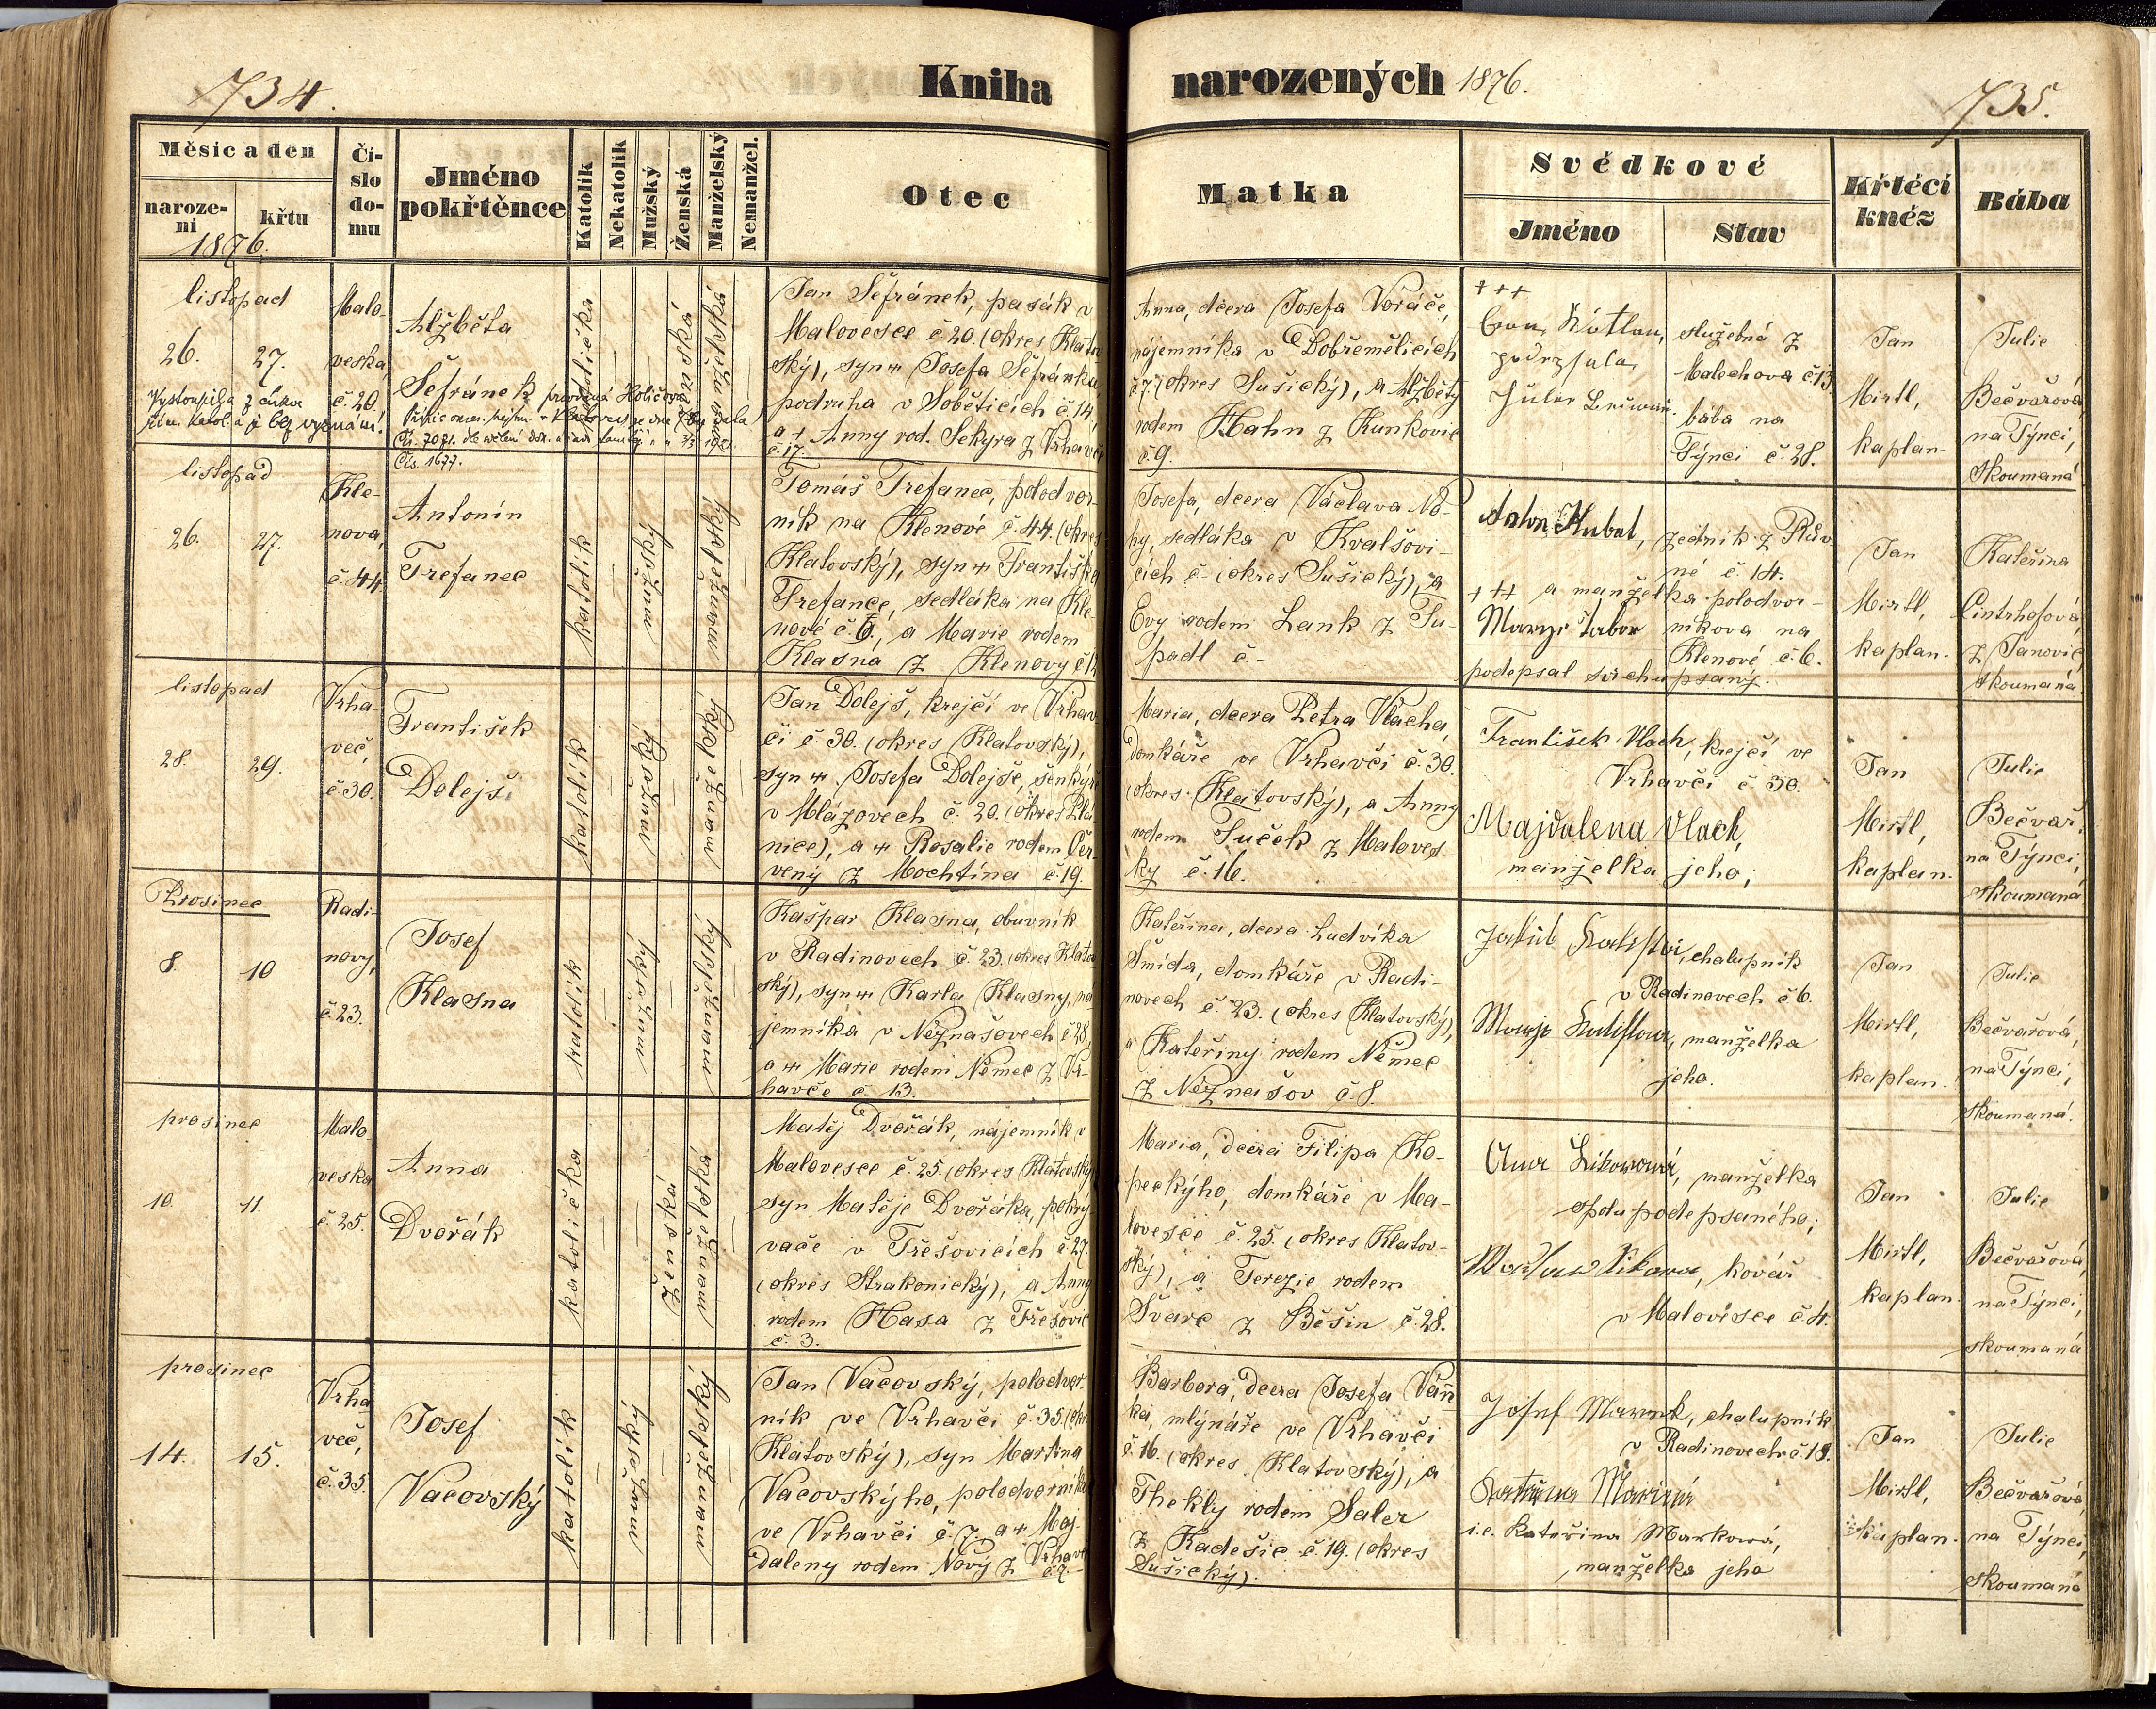 734.
Kniha
narozených 1876.
735.
Měsíc a den
naroze-
ní
křtu
1876.
Čí-
slo
do-
mu
Jméno
pokřtěnce
Katolík
Nekatolík
Mužský
Ženská
Manželský
Nemanžel.
Otec
Matka
Svědkové
Jméno
Stav
Křtécí
kněz
Bába
listopad
26. 27.
Vystoupila z církve
řím. katol. a je bez vyznání.
Malo-
veska,
č. 20.
Alžběta
Šefránek
katolička
ženská
manželská
Jan Šefránek, pasák v
Malovesce č. 20. (okres Klatov
ský), syn Josefa Šefránka,
podruha v Soběticích č. 14,
a Anny rod. Sekyra z Vrhavče
č. 17.
Anna, dcera Josefa Voráče,
nájemníka v Dobřemělicích
č. 7 (okres Sušický), a Alžběty
rodem Hahn z Kunkovic
č. 9.
+++
podepsala
služebná z
Malechova č. 13.
bába na
Týnci č. 28.
Jan
Mirtl,
kaplan.
Julie
Bečvařová
na Týnci,
skoumaná
Čís. 1677.
listopad
26. 27.
Kle-
nova,
č. 44.
Antonín
Trefanec
katolík
mužský
manželský
Tomáš Trefanec, polodvor-
ník na Klenové č. 44. (okres
Klatovský), syn Františka
Trefance, sedláka na Kle-
nové č. 6., a Marie rodem
Klasna z Klenovy č. 12
Josefa, dcera Václava No-
hy, sedláka v Kvalšovi-
cích č - (okres Sušický), a
Evy rodem Lank z Tu-
padl č -
Anton Kubat, zedník z Rův
né č. 14.
+++ a manželka polodvor-
Marye Tabor níkova na
Klenové č. 6.
podepsal svrchu psaný.
Jan
Mirtl,
kaplan.
Kateřina
Cintrhofová,
z Janovic,
skoumaná
listopad
28. 29.
Vrha-
več,
č. 30.
František
Dolejš
katolík
mužský
manželský
Jan Dolejš, krejčí ve Vrhav-
či č. 30. (okres Klatovský),
syn Josefa Dolejše, šenkýře
v Mlázovech č. 20. (okres Plá-
nice), a Rosalie rodem Čer-
vený z Mochtína č. 19.
Maria, dcera Petra Vlacha,
domkáře ve Vrhavči č. 30.
(okres Klatovský), a Anny
rodem Tuček z Maloves-
ky č. 16.
František Vlach, krejčí ve
Vrhavči č. 30.
Majdalena Vlach,
manželka jeho,
Jan
Mirtl,
kaplan.
Julie
Bečvař.
na Týnci,
skoumaná
Prosinec
8. 10
Radi-
novy,
č. 23.
Josef
Klasna
katolík
mužský
manželský
Kašpar Klasna, obuvník
v Radinovech č. 23. (okres Klatov
ský), syn Karla Klasny, ná
jemníka v Neznašovech č. 28,
a Marie rodem Němec z Vr-
havče č. 13.
Kateřina, dcera Ludvíka
Šmída, domkáře v Radi-
novech č. 23. (okres Klatovský),
a Kateřiny rodem Němec
z Neznašov č. 8.
chalupník
v Radinovech č. 6.
manželka
jeho.
Jan
Mirtl,
kaplan.
Julie
Bečvařová,
na Týnci,
skoumaná.
prosinec
10. 11.
Malo
veska
č. 25.
Anna
Dvořák
katolička
ženská
manželská
Matěj Dvořák, nájemník v
Malovesce č. 25. (okres Klatovský),
syn Matěje Dvořáka, pokrý-
vače v Třešovicích č. 27.
(okres Strakonický), a Anny
rodem Hasa z Třešovic
č. 3.
Maria, dcera Filipa Ko-
peckýho, domkáře v Ma-
lovesce č. 25. (okres Klatov-
ský), a Terezie rodem
Švarc z Běšin č. 28.
manželka
spolu podepsaného;
kovář
v Malovesce č. 4.
Jan
Mirtl,
kaplan.
Julie
Bečvařová,
na Týnci,
skoumaná
prosinec
14. 15.
Vrha
več,
č. 35.
Josef
Vacovský
katolík
mužský
manželský
Jan Vacovský, polodvor-
ník ve Vrhavči č. 35. (okr
Klatovský), syn Martina
Vacovskýho, polodvorníka
ve Vrhavči č. 7. a Maj-
daleny rodem Nový z Vrhavč
č. 7.
Barbora, dcera Josefa Vaň-
ka, mlynáře ve Vrhavči
č. 16. (okres Klatovský), a
Thekly rodem Saler
z Kadešic č. 19. (okres
Sušický).
Josef Marek, chalupník
v Radinovech č. 18.
i.e. Kateřina Markowá,
manželka jeho
Jan
Mirtl,
kaplan.
Julie
Bečvařová
na Týnci,
skoumaná